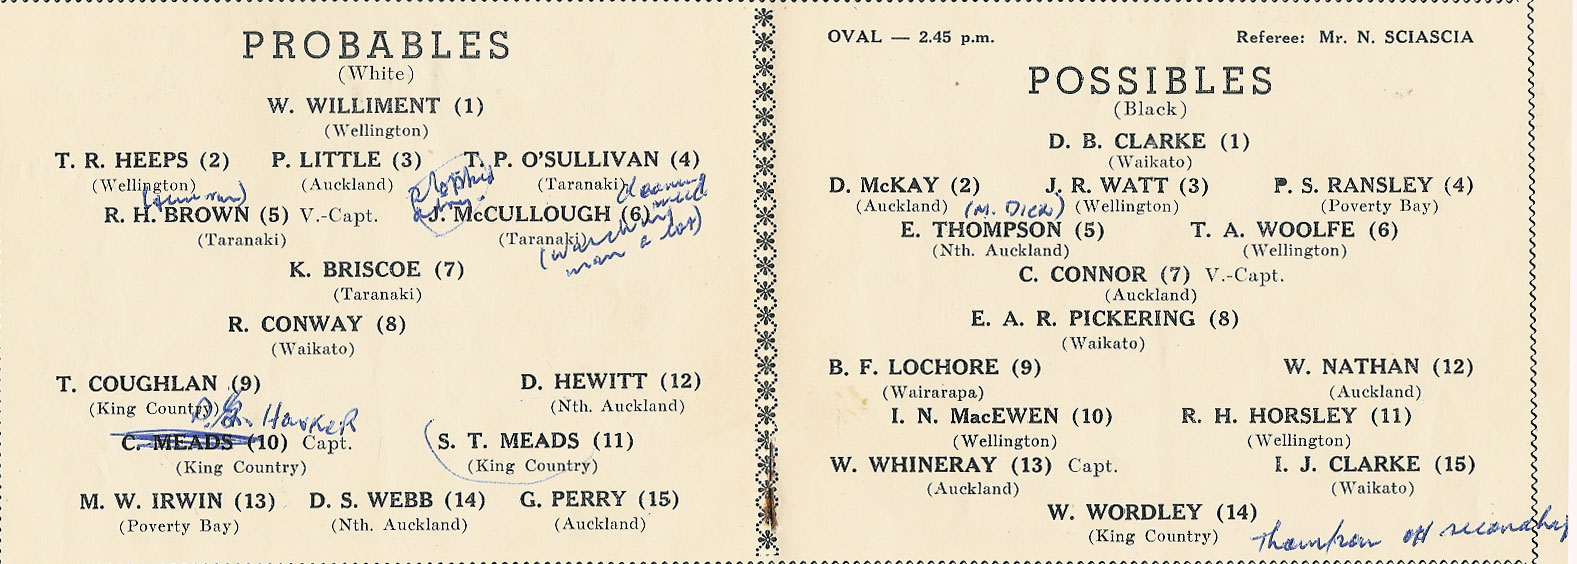 PROBABLES
(White)
W. WILLIMENT (1)
(Wellington)
T. R. HEEPS (2) P. LITTLE (3) T. P. O'SULLIVAN (4)
(Wellington) (Auckland) (Taranaki)
R. H. BROWN (5) V.-Capt. J. McCULLOUGH (6)
(Taranaki) (Taranaki)
man a lot)
K. BRISCOE (7)
(Taranaki)
R. CONWAY (8)
(Waikato)
T. COUGHLAN (9) D. HEWITT (12)
(King Country) (Nth. Auckland)
Harker
C. MEADS (10) Capt. S. T. MEADS (11)
(King Country) (King Country)
M. W. IRWIN (13) D. S. WEBB (14) G. PERRY (15)
(Poverty Bay) (Nth. Auckland) (Auckland)
OVAL — 2.45 p.m. Referee: Mr. N. SCIASCIA
POSSIBLES
(Black)
D. B. CLARKE (1)
(Waikato)
D. McKAY (2) J. R. WATT (3) P. S. RANSLEY (4)
(Auckland) (M. Dick) (Wellington) (Poverty Bay)
E. THOMPSON (5) T. A. WOOLFE (6)
(Nth. Auckland) (Wellington)
C. CONNOR (7) V.-Capt.
(Auckland)
E. A. R. PICKERING (8)
(Waikato)
B. F. LOCHORE (9) W. NATHAN (12)
(Wairarapa) (Auckland)
I. N. MacEWEN (10) R. H. HORSLEY (11)
(Wellington) (Wellington)
W. WHINERAY (13) Capt. I. J. CLARKE (15)
(Auckland) (Waikato)
W. WORDLEY (14)
(King Country) Thompson off second half